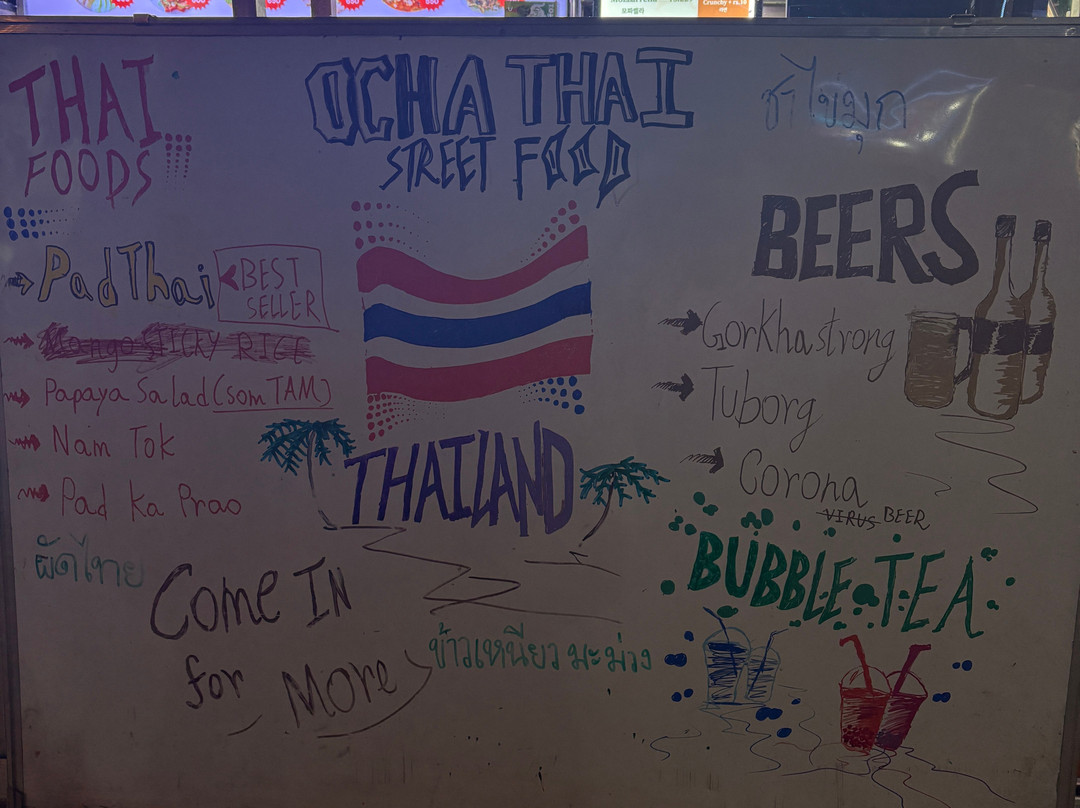 THAI
FOODS
Pad Thai
BEST
SELLER
Mango STICKY RICE
Papaya Salad (som TAM)
Nam Tok
Pad Ka Prao
ผัดไทย
Come IN
for More
OCHA THAI
STREET FOOD
THAILAND
ข้าวเหนียวมะม่วง
ชาไข่มุก
BEERS
Gorkha strong
Tuborg
Corona
VIRUS BEER
BUBBLE TEA